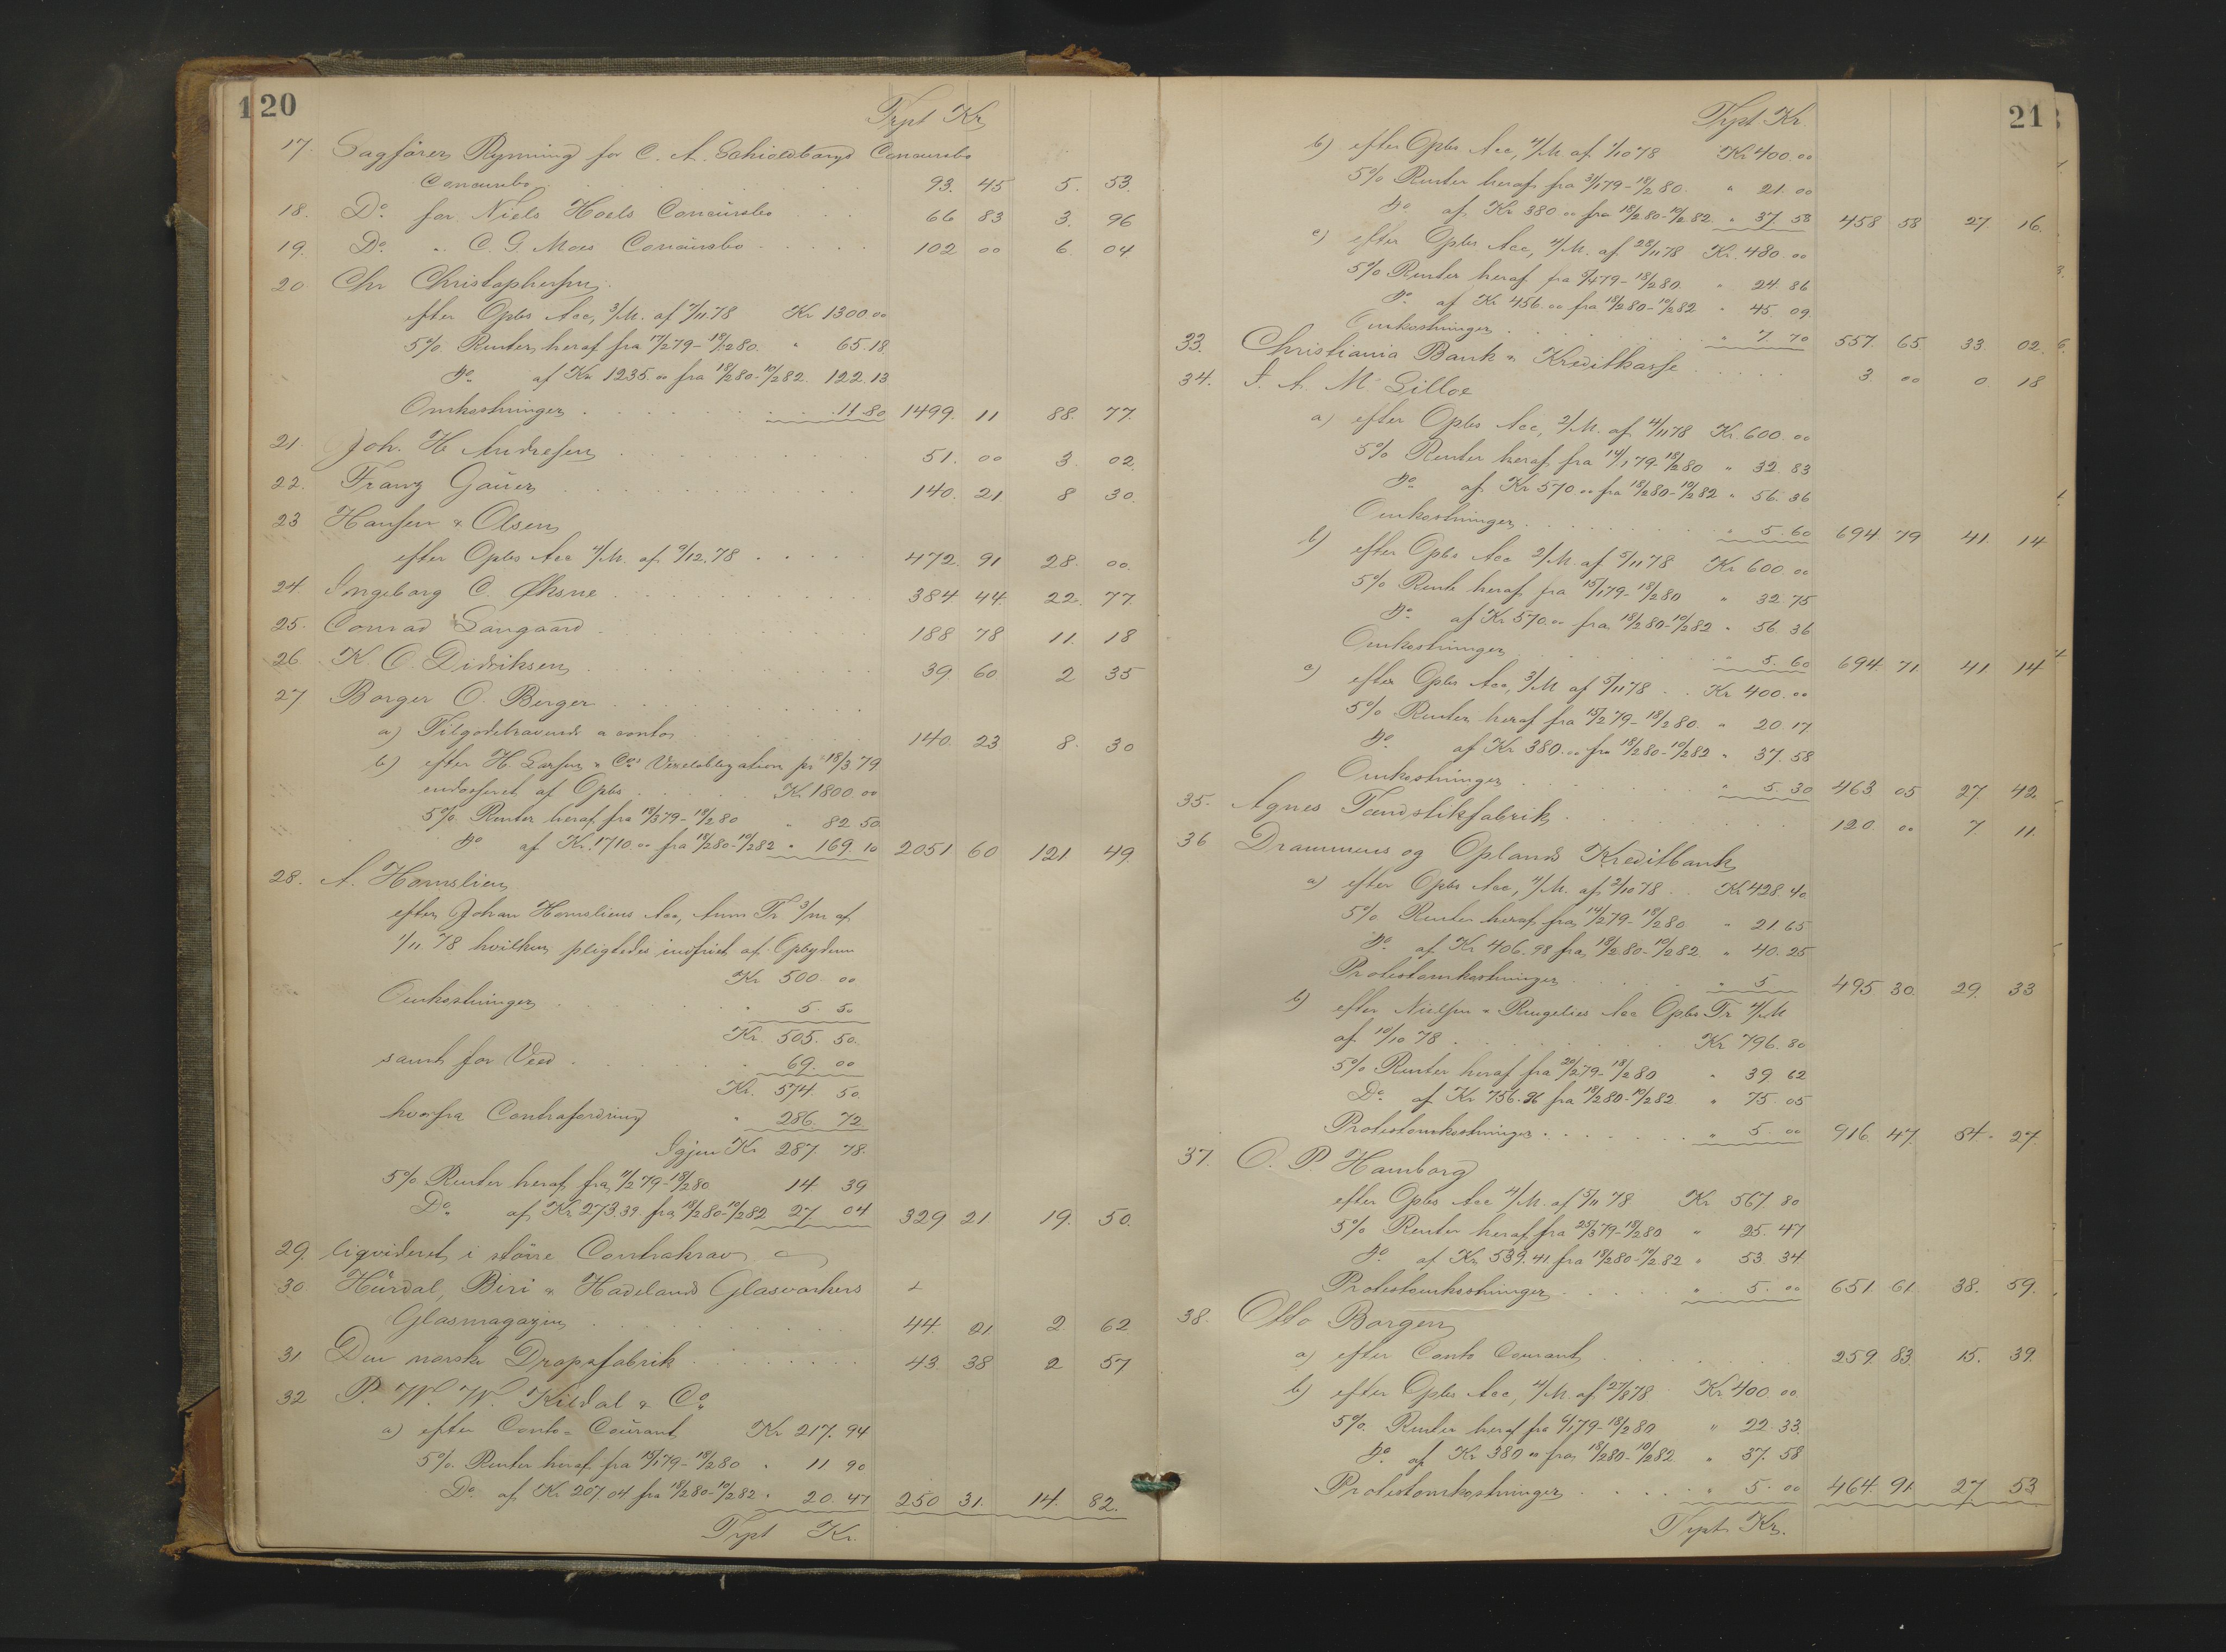 20
Trpt Kr
17. Sagfører Rynning for C. A. Schioldborgs Concursbo
Concursbo . . . 93. 45 5. 53.
18. Do for Niels Hoels Concursbo . . . 66 83 3. 96
19. Do " C. G. Moes Concursbo . . . . 102 00 6. 04
20 Chr Christophersen
efter Opbs Acc, 3/M. af 7/11.78 Kr 1300.00
5% Renter heraf fra 17/2 79 - 18/2 80. " 65.18
Do. af Kr 1235.00 fra 18/2 80 - 10/2 82. 122.13
Omkostninger . . . 11.80 1499. 11 88. 77.
21. Joh. H. Andresen . . . 51. 00 3. 02.
22. Franz Gäuer . . . 140. 21 8 30.
23 Hansen & Olsen
efter Opbs Acc 4/M. af 9/12.78 . . . 472. 91 28. 00.
24. Ingeborg C. Øksne . . . 384 44. 22. 77.
25. Conrad Langaard . . . 188 78 11. 18
26 K. O. Didriksen . . . 39 60 2 35
27 Borger O. Berger . . .
a) Tilgodehavende a conto . . . 140. 23 8. 30
b) efter H. Larsen & Co's Vexelobligation pr 18/3.79
endosseret af Opbs . . . Kr 1800.00
5% Renter heraf fra 18/3 79 - 18/2 80 " 82.50
Do af Kr. 1710.00 fra 18/2 80 - 10/2 82 " 169.10 2051 60 121. 49.
28. A. Homslien
efter Johan Homsliens Acc, Anm Tr 3/m af
1/11 78 hvilken pligtedes indfriet af Opbydern
Kr 500.00
Omkostninger . . . 5.50
Kr. 505.50.
samt for Veed . . . 69.00
Kr. 574.50.
hvorfra Contrafordring " 286.72
Igjen Kr 287.78.
5% Renter heraf fra 11/2 79 - 18/2 80. 14 39
Do. af Kr 273.39. fra 18/2 80 - 10/2 82 27 04 329. 21 19. 50.
29. liqvideret i större Contrakrav
30 Hurdal, Biri & Hadelands Glasværkers
Glasmagazin . . . 44. 21 2. 62
31 Den norske Dropsfabrik . . . 43. 38 2 57
32 P. W. W. Kildal & Co
a) efter Conto-Courant Kr 217.94
5% Renter heraf fra 15/1 79 - 18/2 80 " 11 90
Do. af Kr 207.04 fra 18/2 80 - 10/2 82 " 20.47 250 31. 14. 82.
Trpt Kr.
21
Trpt. Kr.
b) efter Opbs Acc, 4/M af 1/10 78 Kr 400.00
5% Renter heraf fra 31/1 79 - 18/2 80. " 21.00
Do af Kr 380.00 fra 18/2 80 - 10/2 82. " 37.58 458 58 27. 16.
c) efter Opbs Acc, 4/M. af 28/11 78 Kr. 480.00
5% Renter heraf fra 5/4 79 - 18/2 80. " 24.86
Do. af Kr 456.00 fra 18/2 80 - 10/2 82 " 45 09.
Omkostninger . . . " 7.70 557. 65 33. 02.
33. Christiania Bank & Kreditkasse . . . 3 00 0 18
34. I. A. M. Lilloe
a) efter Opbs Acc, 2/M. af 4/11 78 Kr. 600.00
5% Renter heraf fra 14/1 79 - 18/2 80 " 32.83
Do. af Kr 570.00 fra 18/2 80 - 10/2 82 " 56.36
Omkostninger . . . " 5.60 694. 79 41. 14
b) efter Opbs Acc 2/M. af 5/11 78 Kr 600.00
5% Rente heraf fra 15/1 79 - 18/2 80 " 32.75
Do. af Kr 570.00 fra 18/2 80 - 10/2 82 " 56.36
Omkostninger . . . " 5.60 694. 71 41. 14
c) efter Opbs Acc, 3/M af 5/11 78 . . Kr 400.00
5% Renter heraf fra 15/2 79 - 18/2 80 " 20.17
Do. af Kr 380.00 fra 18/2 80 - 10/2 82 " 37.58
Omkostninger . . . " 5.30 463. 05 27 42.
35. Agnes Tændstikfabrik . . . 120. 00 7 11.
36 Drammens og Oplands Kreditbank
a) efter Opbs Acc, 4/M. af 2/10 78 . . Kr 428.40
5% Renter heraf fra 14/2 79 - 18/2 80 " 21.65
Do. af Kr 406.98 fra 18/2 80 - 10/2 82 " 40.25
Protestomkostninger . . . " 5 495. 30. 29. 33
b) efter Nielsen & Ringelies Acc Opbs Tr 4/M
af 10/10 78 . . . Kr 796.80
5% Renter heraf fra 20/2 79 - 18/2 80 " 39.62
Do. af Kr 756.96 fra 18/2 80 - 10/2 82. " 75.05
Protestomkostninger . . . " 5.00 916. 47. 54. 27.
37. O. P. Hamborg
efter Opbs Acc 4/M. af 5/11 78 Kr 567.80
5% Renter heraf fra 25/3 79 - 18/2 80 " 25.47
Do. af Kr 539.41 fra 18/2 80 - 10/2 82 " 53 34
Protestomkostninger . . . " 5.00 651. 61. 38. 59.
38. Otto Borgen
a) efter Conto Courant . . . 259. 83. 15. 39.
b) efter Opbs Acc, 4/M. af 27/8 78 Kr 400.00
5% Renter heraf fra 6/1 79 - 18/2 80 " 22.33.
Do. af Kr 380.00 fra 18/2 80 - 10/2 82 " 37.58
Protestomkostninger . . . " 5.00 464. 91. 27 53
Trpt. Kr.